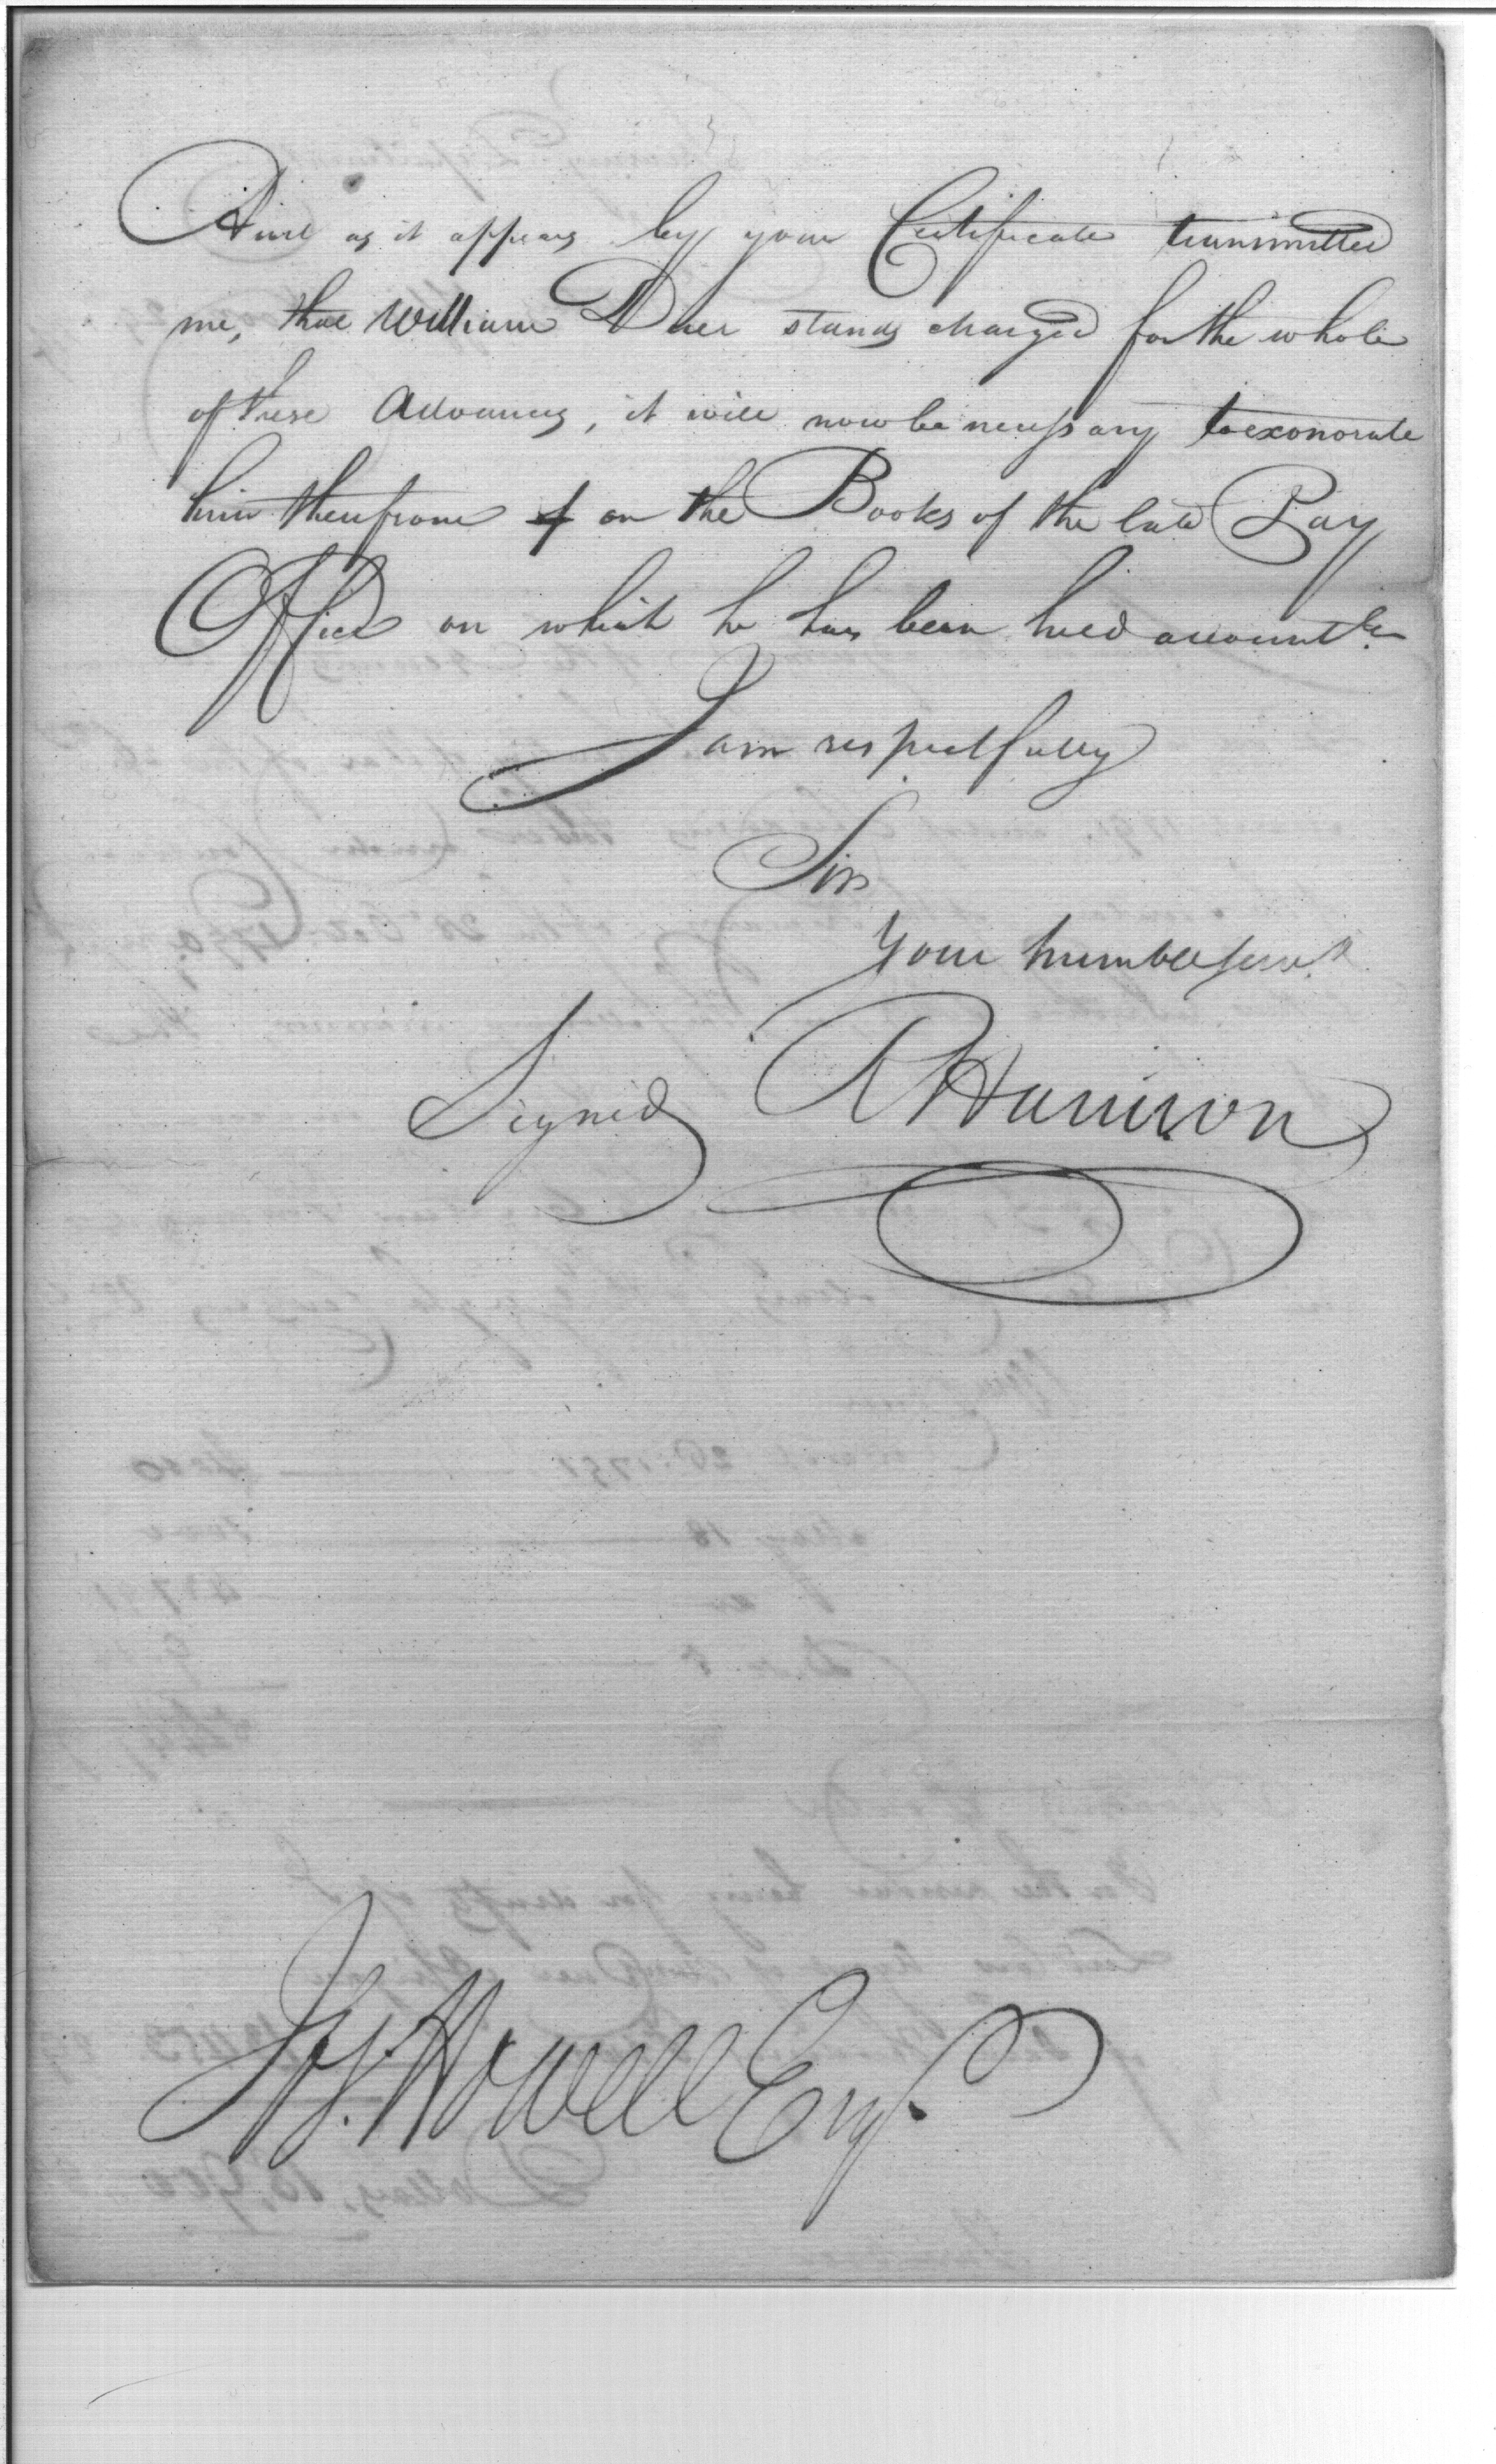 And as it appears by your Certificate transmitted
me, that William Duer stands charged for the whole
of these Advances, it will now be necessary to exonorate
him therefrom on the Books of the late Pay
Office on which he has been held account.ble
I am respectfully
Sir
Your humble serv.t
Signed R Harrison
Jos. Howell Esq.r